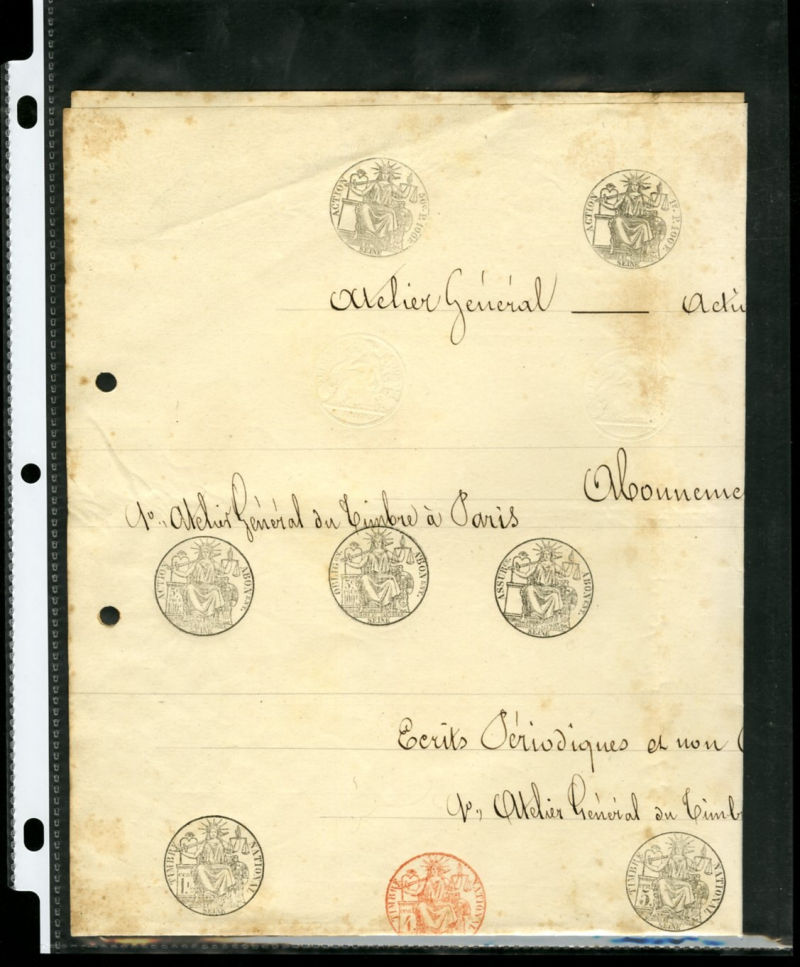 ACTION 50c P. 100F. SEINE
ACTION 1F. P. 100F. SEINE
Atelier Général —
Abonneme
1o,, Atelier Général du Timbre à Paris
ACTION ABONNT. SEINE
OBLIG. ABONNT. SEINE
ASSUR. ABONNT. SEINE
Ecrits Périodiques et non
1o,, Atelier Général du Timb
TIMBRE NATIONAL SEINE
TIMBRE NATIONAL
TIMBRE NATIONAL SEINE